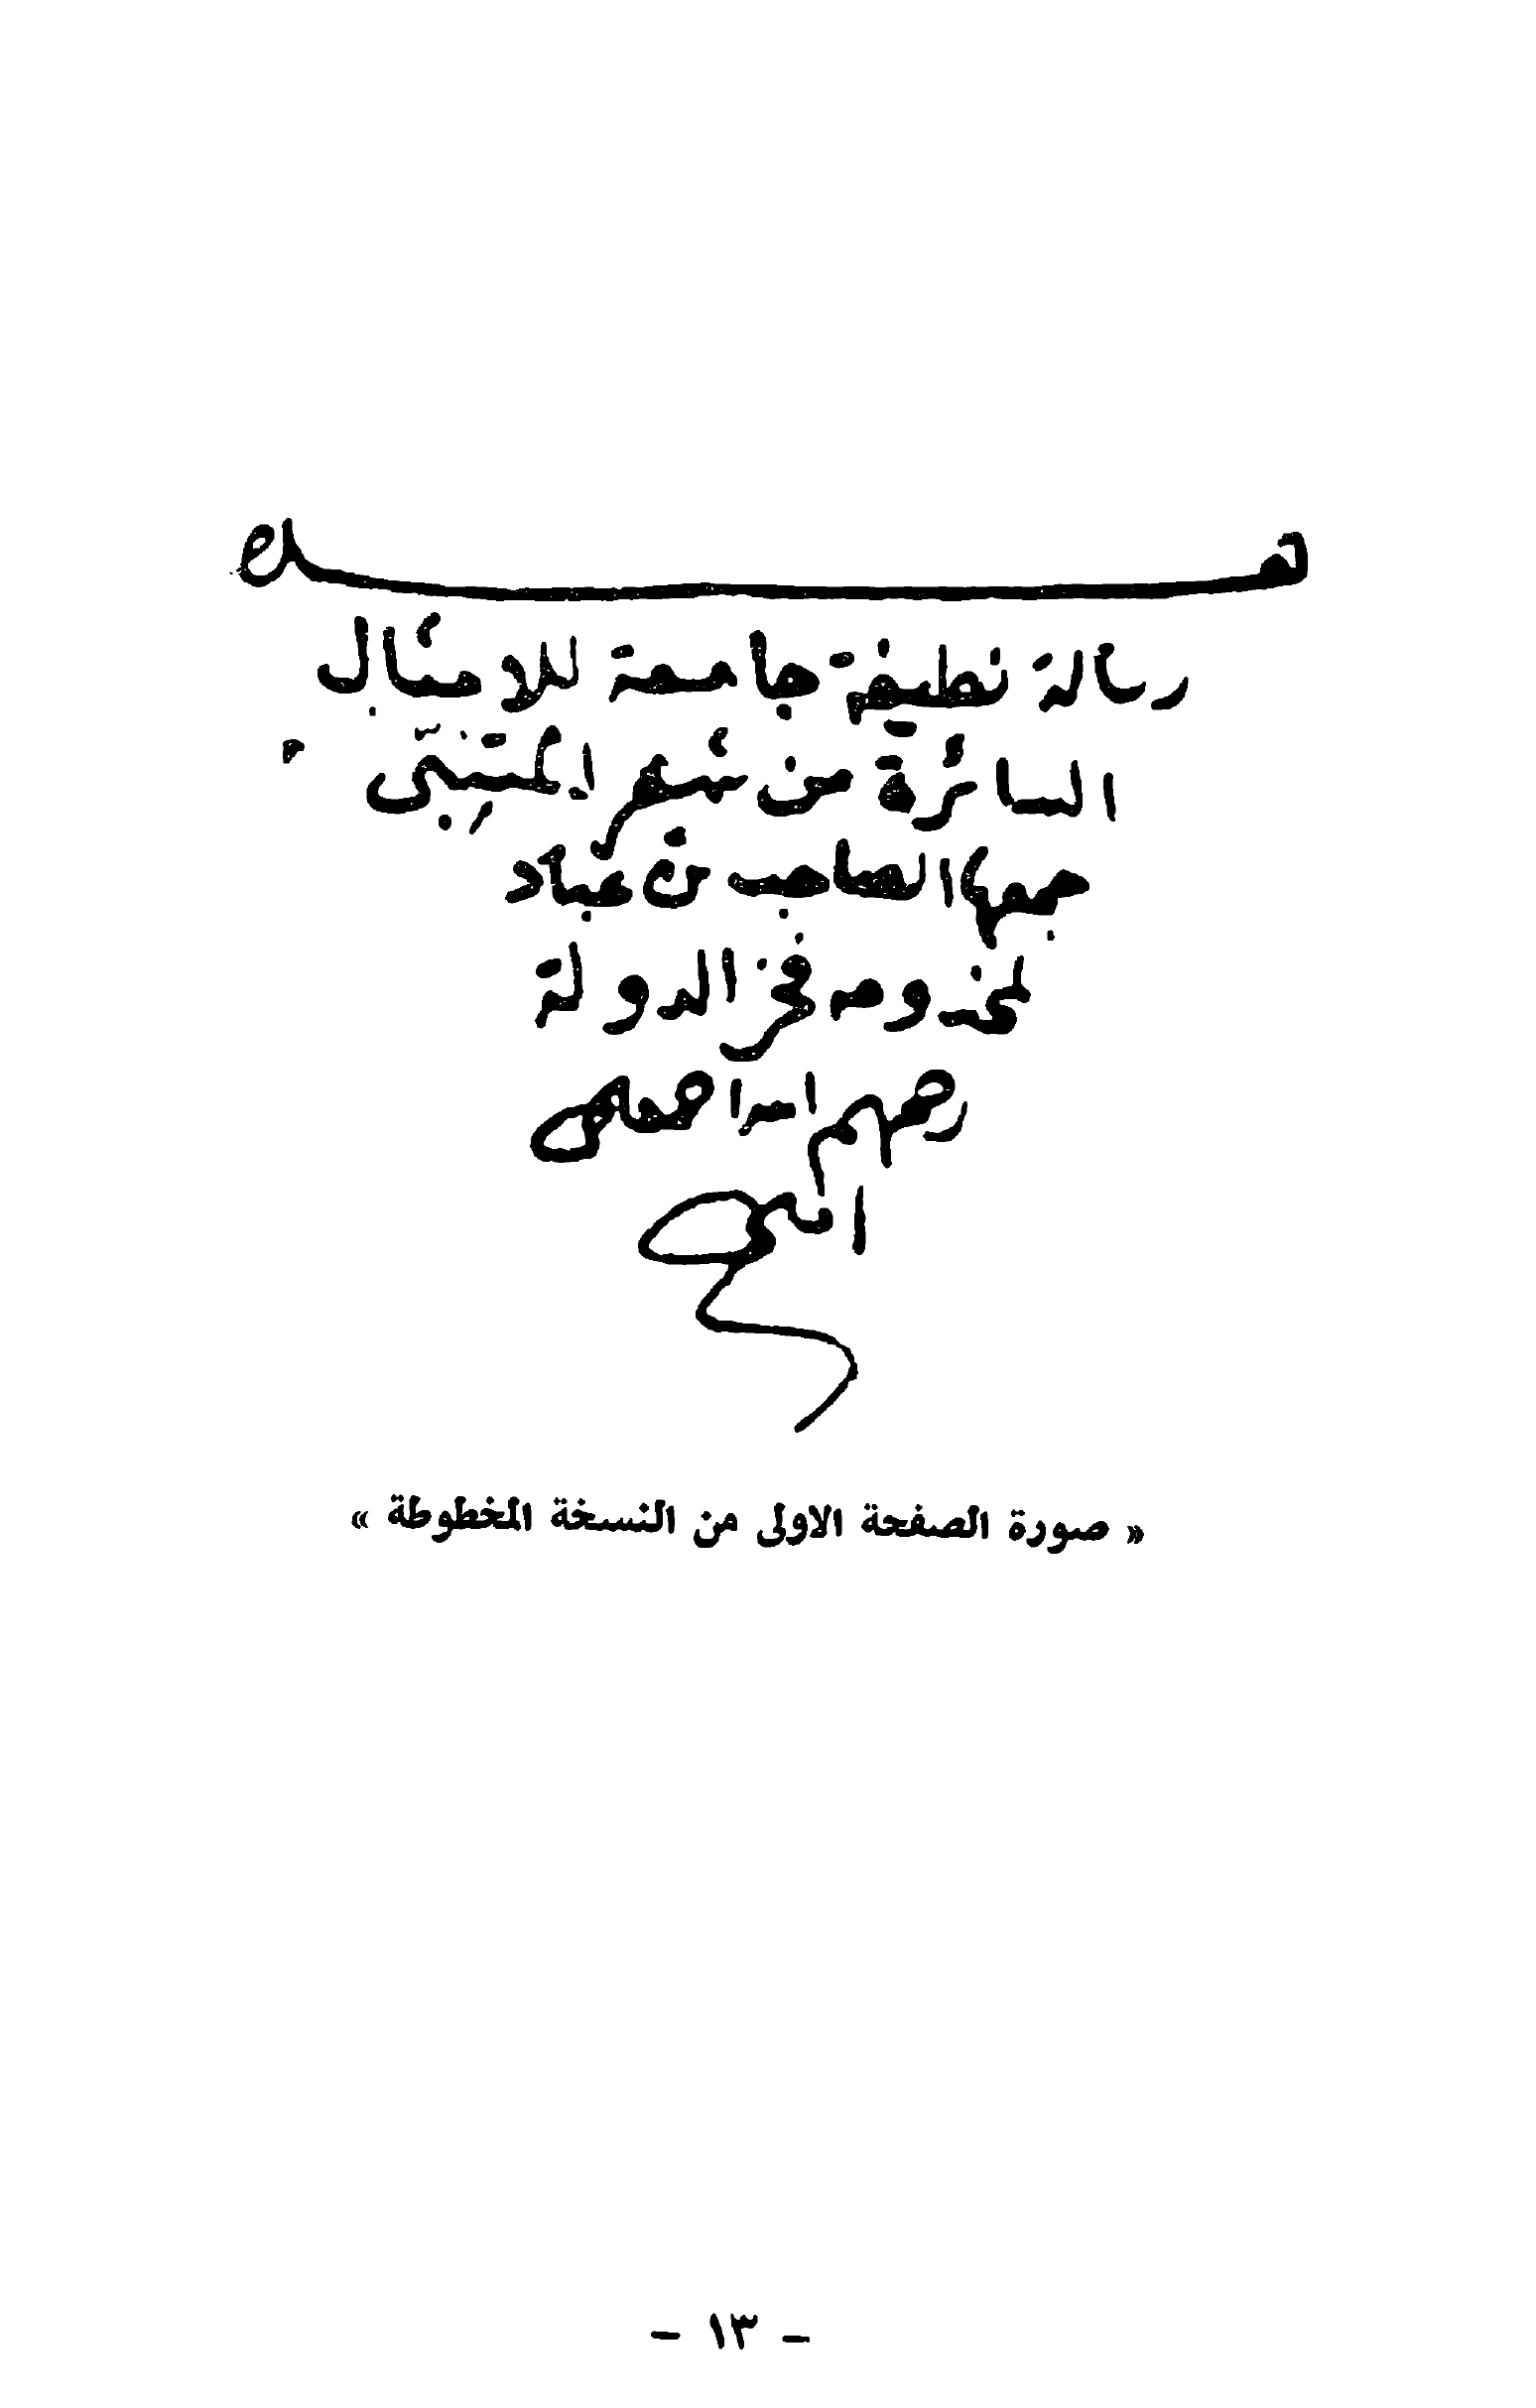 هــــــــذه
رسالة نطيفة جامعة للامثال
السائرة من شعر المتنبّي
جمعها الصاحب بن عباد
لمخدومه فخر الدولة
رحمهم الله اجمعين
« صورة الصفحة الاولى من النسخة المخطوطة »
- ١٣ -